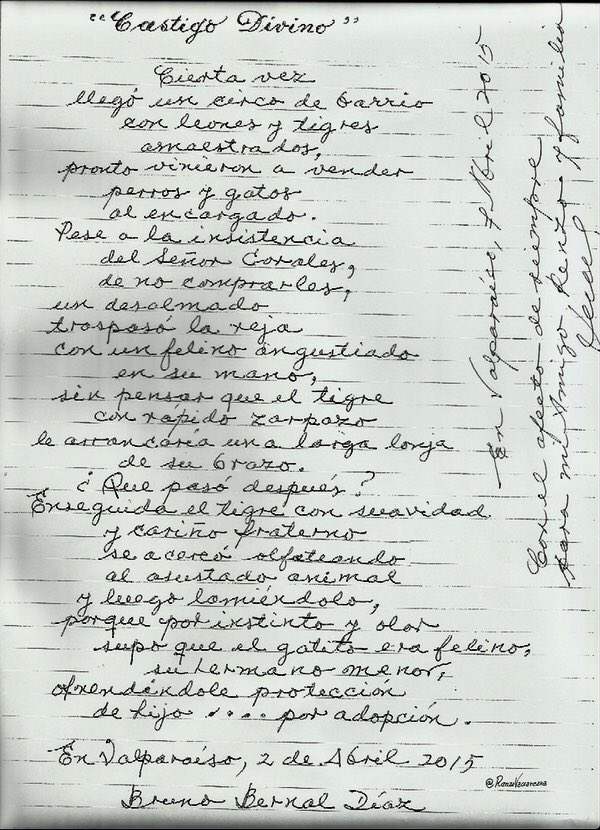 “Castigo Divino”
Cierta vez
llegó un circo de barrio
con leones y tigres
amaestrados,
pronto vinieron a vender
perros y gatos
al encargado.
Pese a la insistencia
del Señor Corales,
de no comprarles,
un desalmado
traspasó la reja
con un felino angustiado
en su mano,
sin pensar que el tigre
con rápido zarpazo
le arrancaría una larga lonja
de su brazo.
¿Que pasó después?
Enseguida el tigre con suavidad
y cariño fraterno
se acercó olfateando
al asustado animal
y luego lamiéndolo,
porque por instinto y olor
supo que el gatito era felino,
su hermano menor,
ofrendándole protección
de hijo .... por adopción.
En Valparaíso, 2 de Abril 2015
Bruno Bernal Díaz
En Valparaíso, 7 Abril 2015
Con el afecto de siempre
para mi Amigo Renzo y familia